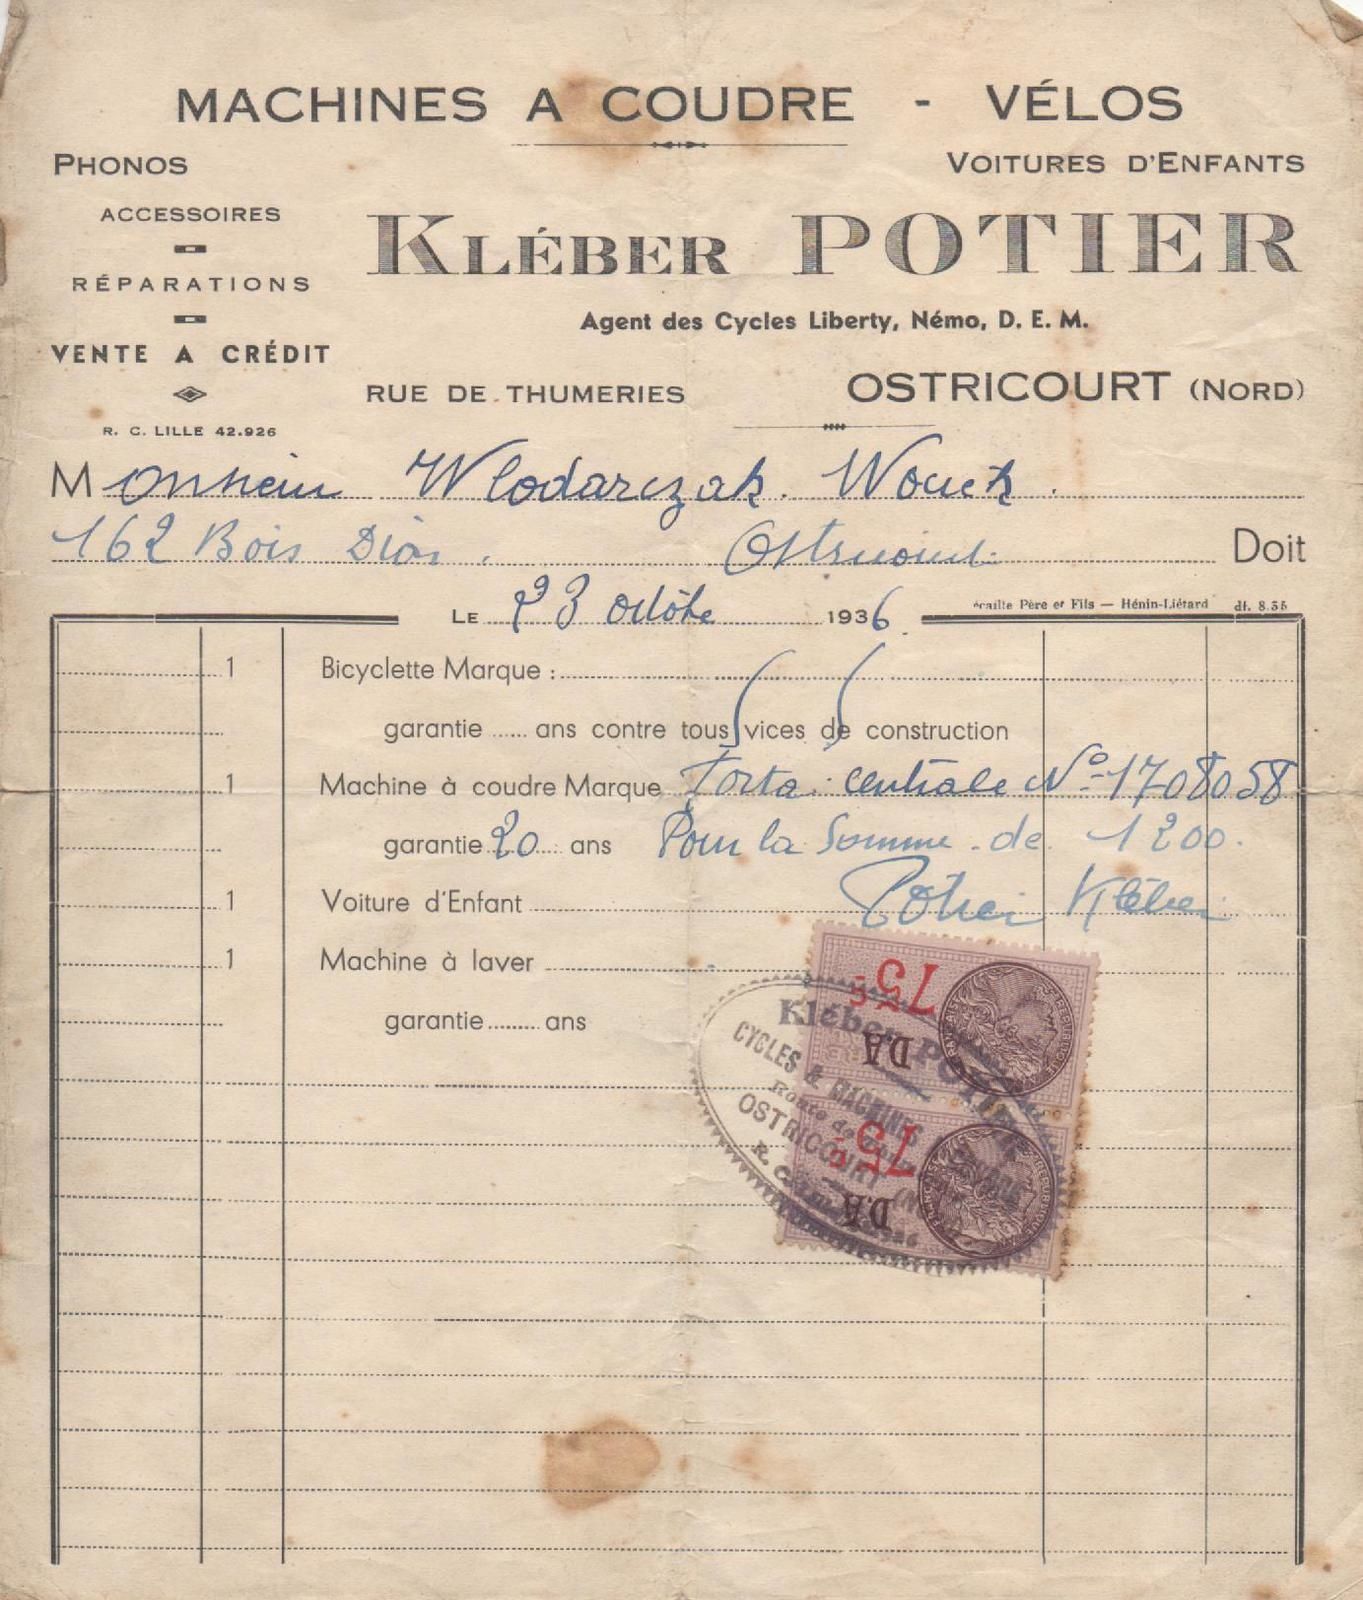 MACHINES A COUDRE - VÉLOS
PHONOS
VOITURES D'ENFANTS
ACCESSOIRES
KLÉBER POTIER
RÉPARATIONS
Agent des Cycles Liberty, Némo, D. E. M.
VENTE A CRÉDIT
RUE DE THUMERIES
OSTRICOURT (NORD)
R. C. LILLE 42.926
Monsieur Wlodarczak.
162 Bois Dion. Ostricourt. Doit
écaille Père et Fils — Hénin-Liétard df. 8.55
LE 23 octobre 1936
1 Bicyclette Marque :
garantie ...... ans contre tous vices de construction
1 Machine à coudre Marque centrale No 1708058
garantie 20 ans Pour la Somme de 1200.
1 Voiture d'Enfant Potier Kléber
1 Machine à laver
garantie ......... ans
75c
DA
75c
DA
RÉPUBLIQUE FRANÇAISE
Kléber POTIER
CYCLES & MACHINES
Route de
OSTRICOURT
R. C.